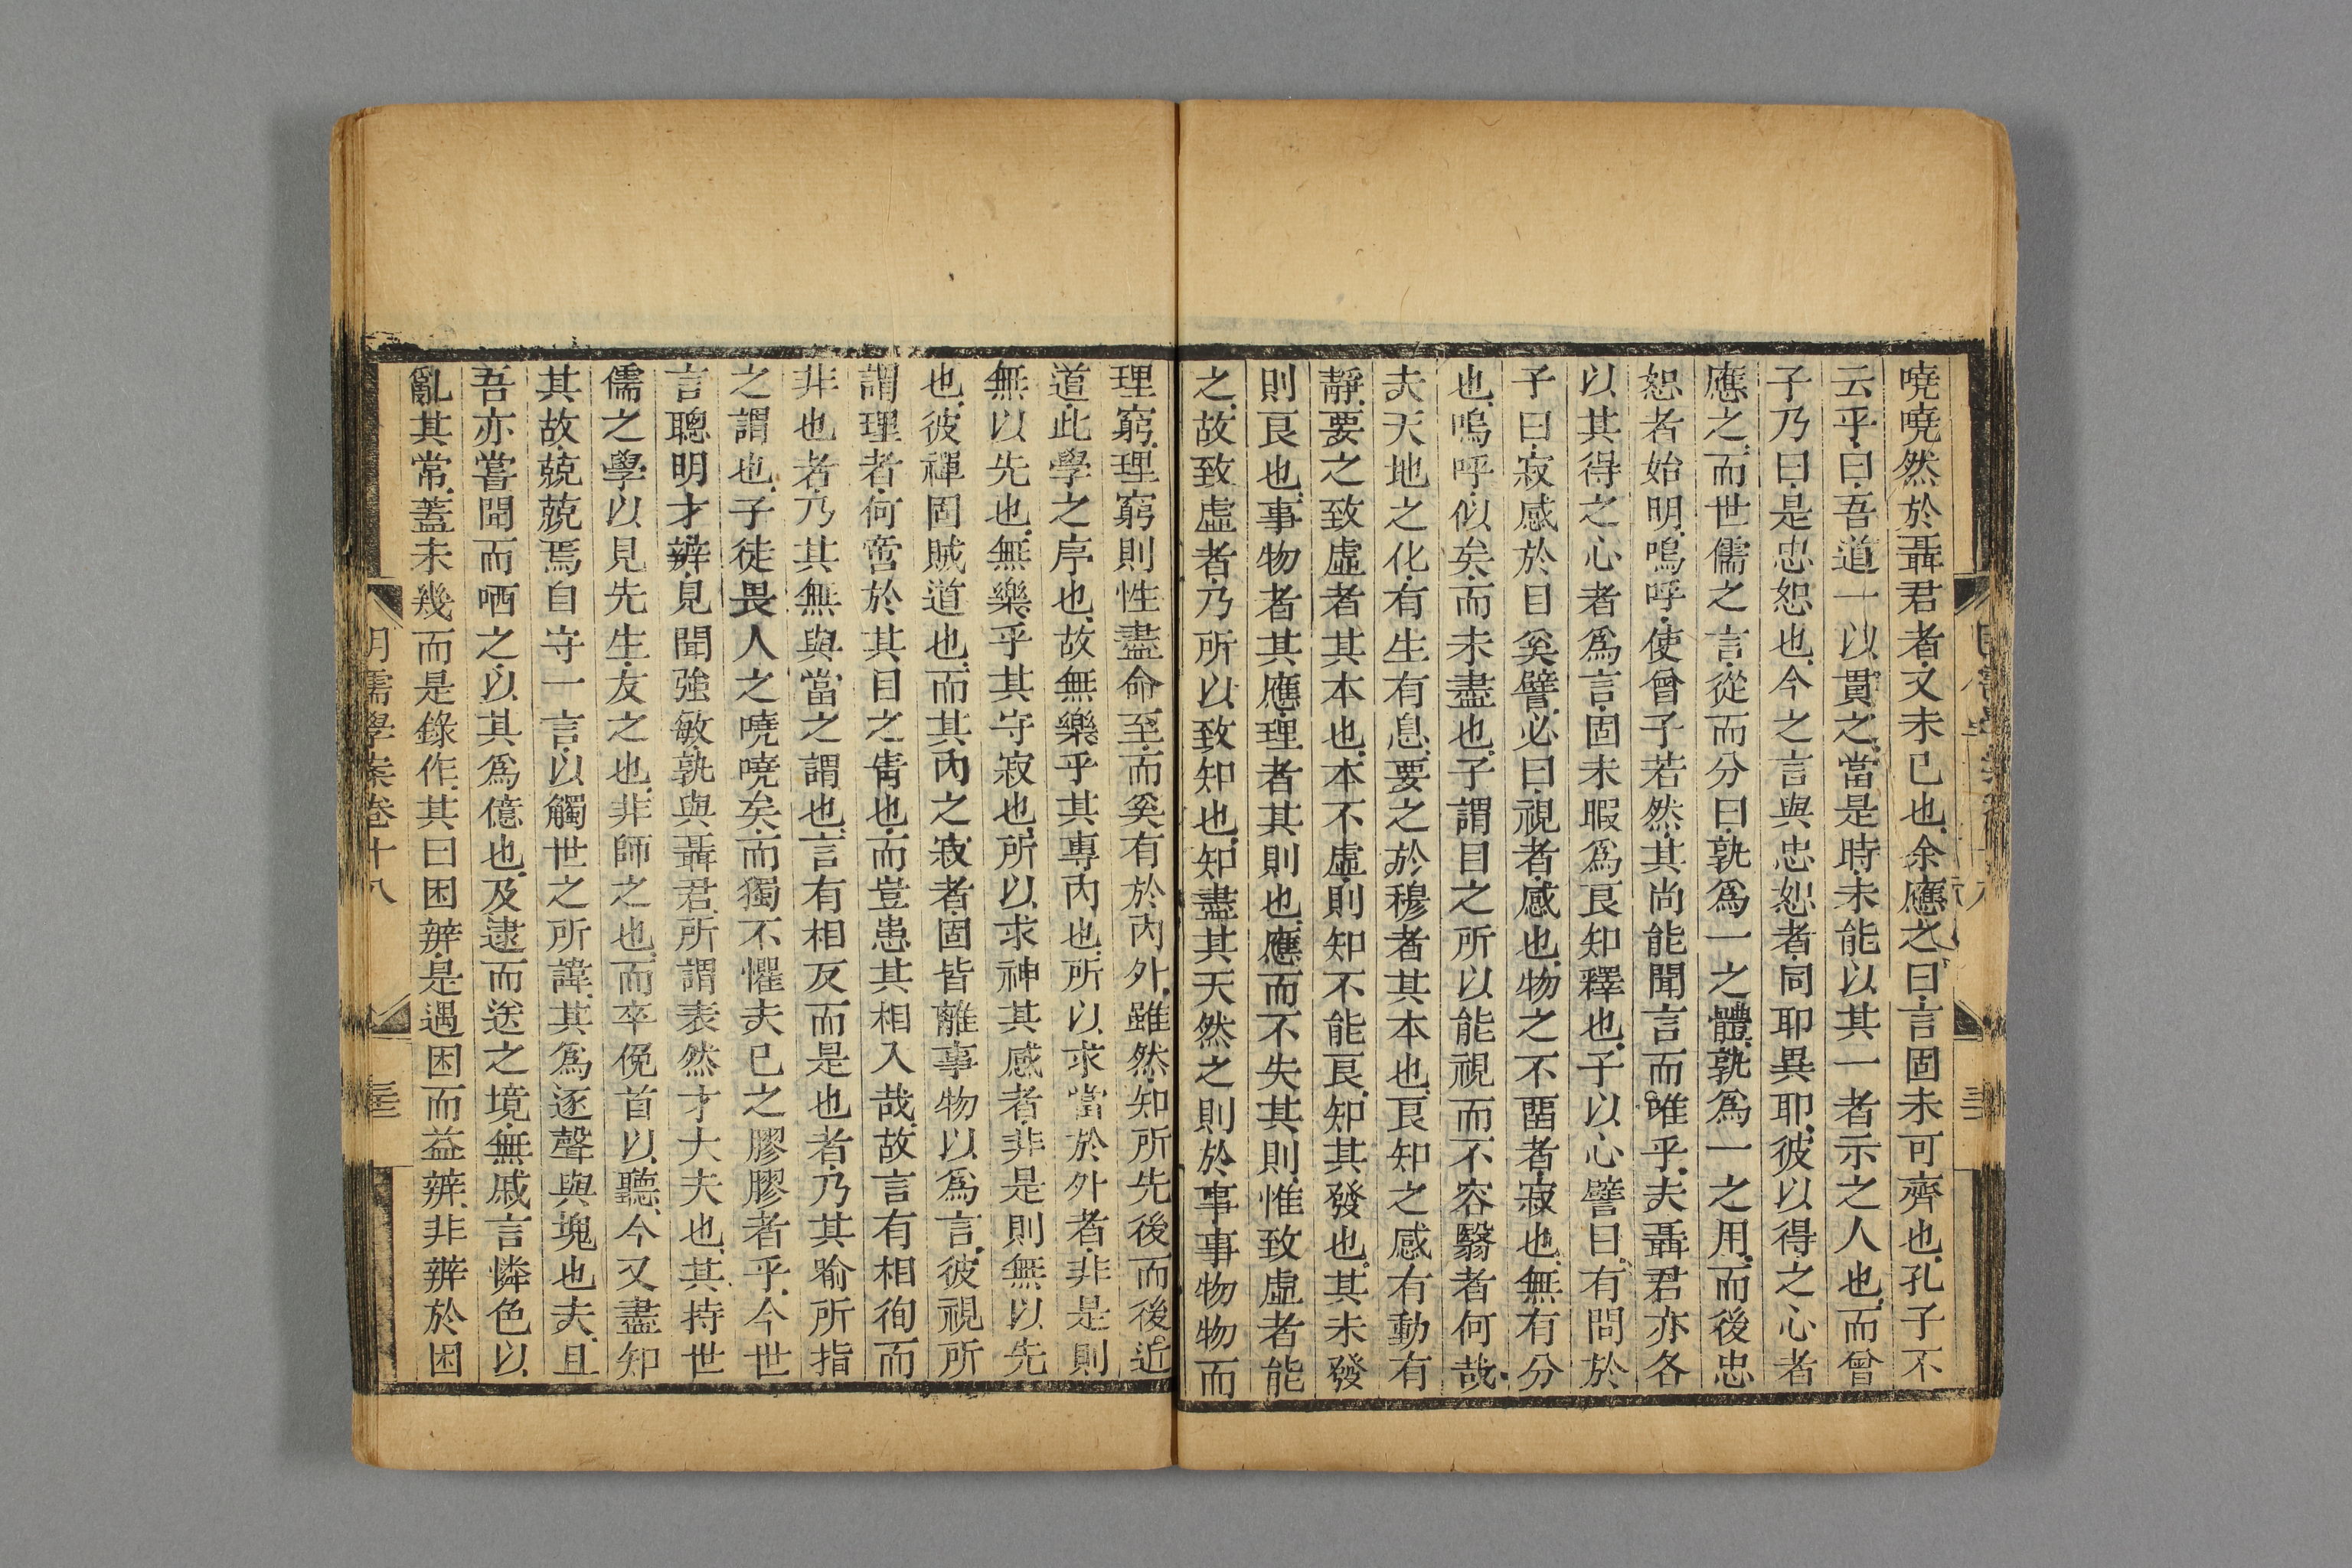 嘵嘵然於聶君者又未已也余應之曰言固未可齊也孔子不
云乎曰吾道一以貫之當是時未能以其一者示之人也而曾
子乃曰是忠恕也今之言與忠恕者同耶異耶彼以得之心者
應之而世儒之言從而分曰孰爲一之體孰爲一之用而後忠
恕者始明嗚呼使曾子若然其尚能聞言而唯乎夫聶君亦各
以其得之心者爲言固未暇爲良知釋也子以心譬曰有問於
子曰寂感於目奚譬必曰視者感也物之不畱者寂也無有分
也嗚呼似矣而未盡也子謂目之所以能視而不容翳者何哉
夫天地之化有生有息要之於穆者其本也良知之感有動有
靜要之致虛者其本也本不虛則知不能良知其發也其未發
則良也事物者其應理者其則也應而不失其則惟致虛者能
之故致虛者乃所以致知也知盡其天然之則於事事物物而
理窮理窮則性盡命至而奚有於內外雖然知所先後而後近
道此學之序也故無樂乎其專內也所以求當於外者非是則
無以先也無樂乎其守寂也所以求神其感者非是則無以先
也彼禪固賊道也而其內之寂者固皆離事物以爲言彼視所
謂理者何啻於其目之眚也而豈患其相入哉故言有相徇而
非也者乃其無與當之謂也言有相反而是也者乃其喻所指
之謂也子徒畏人之嘵嘵矣而獨不懼夫己之膠膠者乎今世
言聰明才辨見聞強敏孰與聶君所謂表然才大夫也其持世
儒之學以見先生友之也非師之也而卒俛首以聽今又盡知
其故兢兢焉自守一言以觸世之所諱其爲逐聲與塊也夫且
吾亦嘗聞而哂之以其爲億也及逮而送之境無戚言憐色以
亂其常蓋未幾而是錄作其曰困辨是遇困而益辨非辨於困
明儒學案卷十八